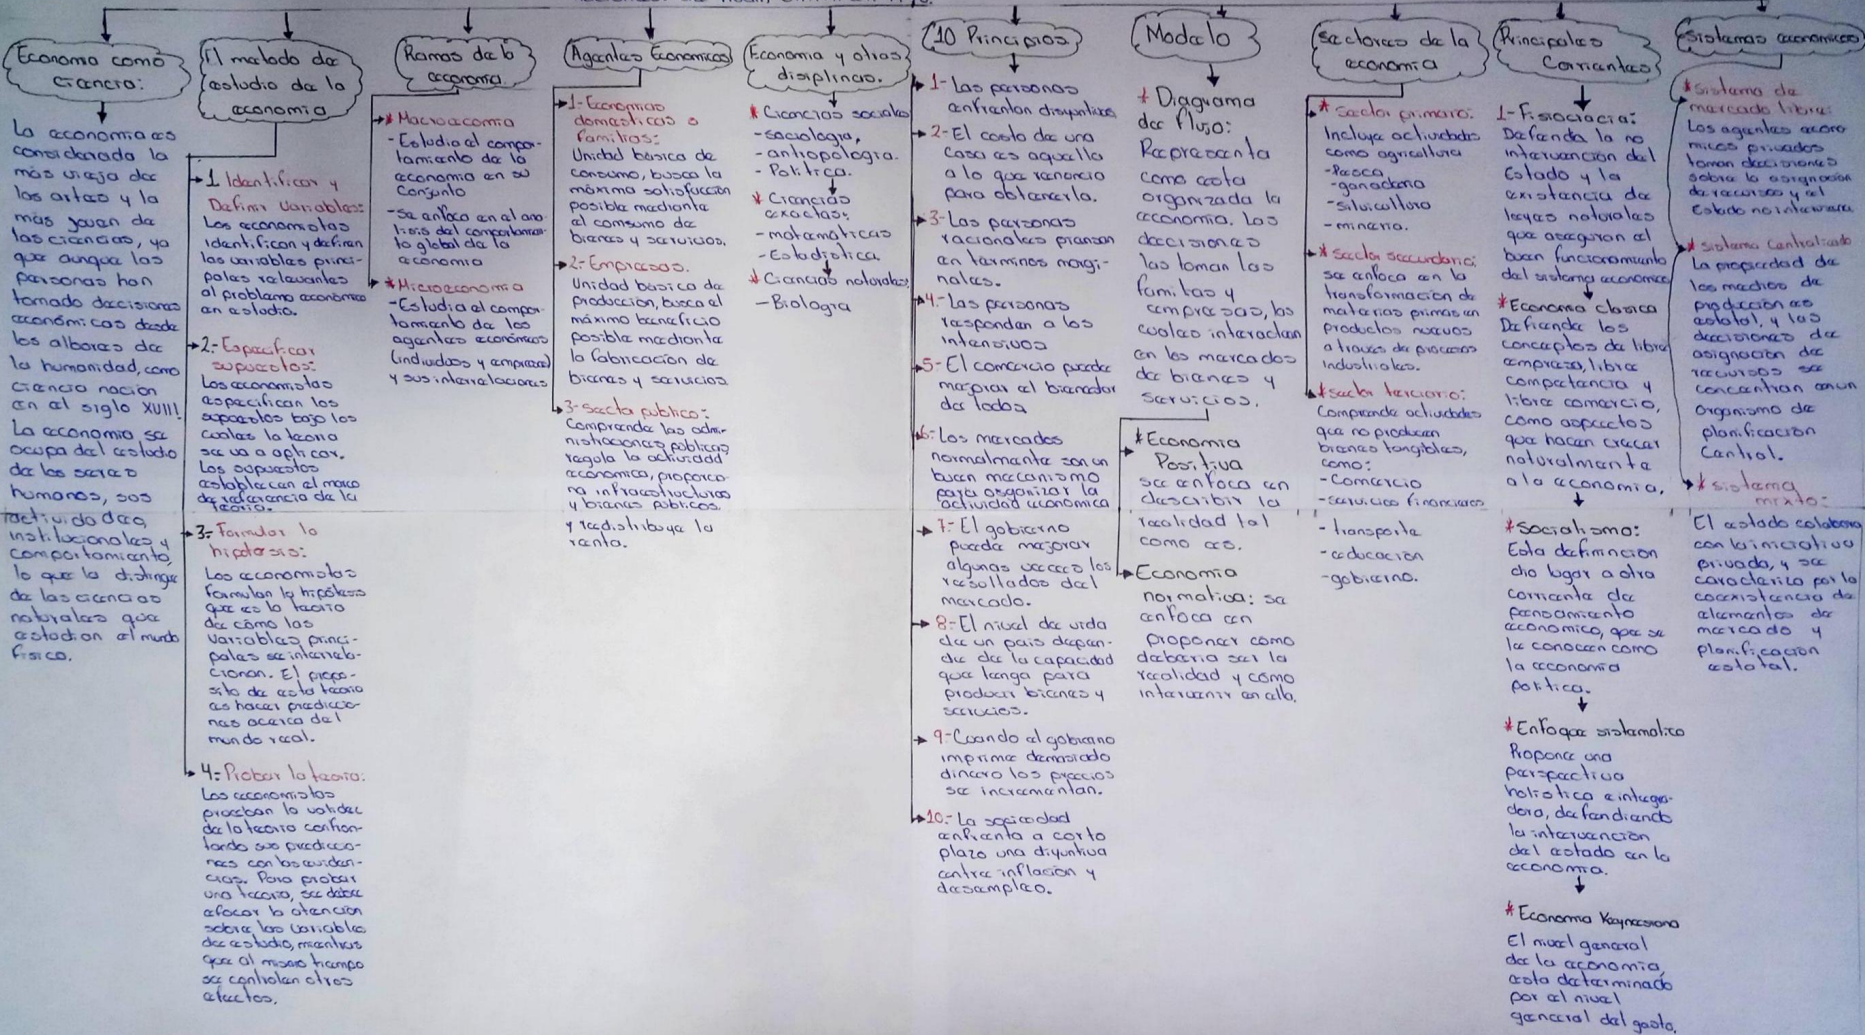 Economia como
ciencia:
La economia es
considerada la
más vieja de
las artes y la
más joven de
las ciencias, ya
que aunque las
personas han
tomado decisiones
económicas desde
los albores de
la humanidad, como
ciencia nación
en el siglo XVIII!
La economia se
ocupa del estudio
de los seres
humanos, sus
actividades,
institucionales y
comportamiento,
lo que la distingue
de las ciencias
naturales que
estudian el mundo
fisico.
El metodo de
estudio de la
economia
1 Identificar y
Definir Variables:
Los economistas
identifican y definen
las variables princi-
pales relevantes
al problema económico
en estudio.
2.- Especificar
supuestos:
Los economistas
especifican los
supuestos bajo los
cuales la teoria
se va a aplicar.
Los supuestos
establecen el marco
de referencia de la
teoria.
3.- Formular la
hipótesis:
Los economistas
formulan la hipótesis
que es la teoria
de cómo las
variables princi-
pales se interrela-
cionan. El propo-
sito de esta teoria
es hacer prediccio-
nes acerca del
mundo real.
4.- Probar la teoria:
Los economistas
prueban la validez
de la teoria confron-
tando sus prediccio-
nes con las eviden-
cias. Para probar
una teoria, se debe
efocar la atención
sobre las variables
de estudio, mientras
que al mismo tiempo
se controlan otros
efectos.
Ramas de la
economia.
* Macroecomia
- Estudia el compor-
tamiento de la
economia en su
conjunto
- se enfoca en el ana-
lisis del comportamien-
to global de la
economia
* Microeconomia
- Estudia el compor-
tamiento de los
agentes económicos
(individuos y empresas)
y sus interrelaciones
Agentes Económicos
1- Economias
domesticas o
familias:
Unidad básica de
consumo, busca la
máxima satisfacción
posible mediante
el comsumo de
bienes y servicios.
2- Empresas.
Unidad básica de
producción, busca el
máximo beneficio
posible mediante
la fabricación de
bienes y servicios
3- secto publico:
Comprende las admi-
nistraciones públicas,
regula la actividad
economica, proporcio-
na infraestructuras
y bienes públicos.
y redistribuye la
renta.
Economia y otras
disiplinas.
* Ciencias sociales
- sociologia,
- antropologia.
- Politica.
* Ciencias
exactas:
- matemáticas
- Estadistica
* Ciencias naturales:
- Biologia
10 Principios
1- Las personas
enfrentan disyuntivas
2- El costo de una
cosa es aquella
a lo que renuncia
para obtenerla.
3- Las personas
racionales piensan
en términos margi-
nales.
4- Las personas
responden a los
intensivos
5- El comercio puede
mejorar el bienestar
de todos
6- Los mercados
normalmente son un
buen mecanismo
para organizar la
actividad económica
7- El gobierno
puede mejorar
algunas veces los
resultados del
mercado.
8- El nivel de vida
de un pais depen-
de de la capacidad
que tenga para
producir bienes y
servicios.
9- Cuando el gobierno
imprime demasiado
dinero los precios
se incrementan.
10.- La sociedad
enfrenta a corto
plazo una diyuntiva
entre inflación y
desempleo.
Modelo
* Diagrama
de flujo:
Representa
como esta
organizada la
economia. Las
decisiones
las toman las
familias y
empresas, las
cuales interactuan
en los mercados
de bienes y
servicios.
* Economia
Positiva
se enfoca en
describir la
realidad tal
como es.
Economia
normativa: se
enfoca en
proponer como
deberia ser la
realidad y cómo
intervenir en ella.
sectores de la
economia
* sector primario:
Incluye actividades
como agricultura
- Pesca
- ganaderia
- silvicultura
- mineria.
* sector secundario:
se enfoca en la
transformación de
materias primas en
productos nuevos
a través de procesos
industriales.
* sector terciario:
Comprende actividades
que no producen
bienes tangibles,
como:
- Comercio
- servicios financieros
- transporte
- educación
- gobierno.
Principales
Corrientes
1- Fisiocracia:
Defiende la no
intervención del
Estado y la
existencia de
leyes naturales
que aseguran el
buen funcionamiento
del sistema económico
* Economia clasica
Defiende los
conceptos de libre
empresa, libre
competencia y
libre comercio,
como aspectos
que hacen crecer
naturalmente
a la economia.
* socialismo:
Esta definincion
dio lugar a otra
corriente de
pensamiento
económico, que se
le conocen como
la economia
politica.
* Enfoque sistematico
Propone una
perspectiva
holistica e integra-
dora, defendiendo
la intervención
del estado en la
economia.
* Economia Keynesiana
El nivel general
de la economia,
esta determinado
por el nivel
general del gasto.
sistemas economicos
* sistema de
mercado libre:
Los agentes econo
micos privados
toman decisiones
sobre la asignación
de recursos y el
Estado no interviene.
* sistema Centralizado
La propiedad de
los medios de
producción es
estatal, y las
decisiones de
asignación de
recursos se
concentran en un
organismo de
planificación
Central.
* sistema
mixto:
El estado colabora
con la iniciativa
privada, y se
caracteriza por la
coexistencia de
elementos de
mercado y
planificación
estatal.